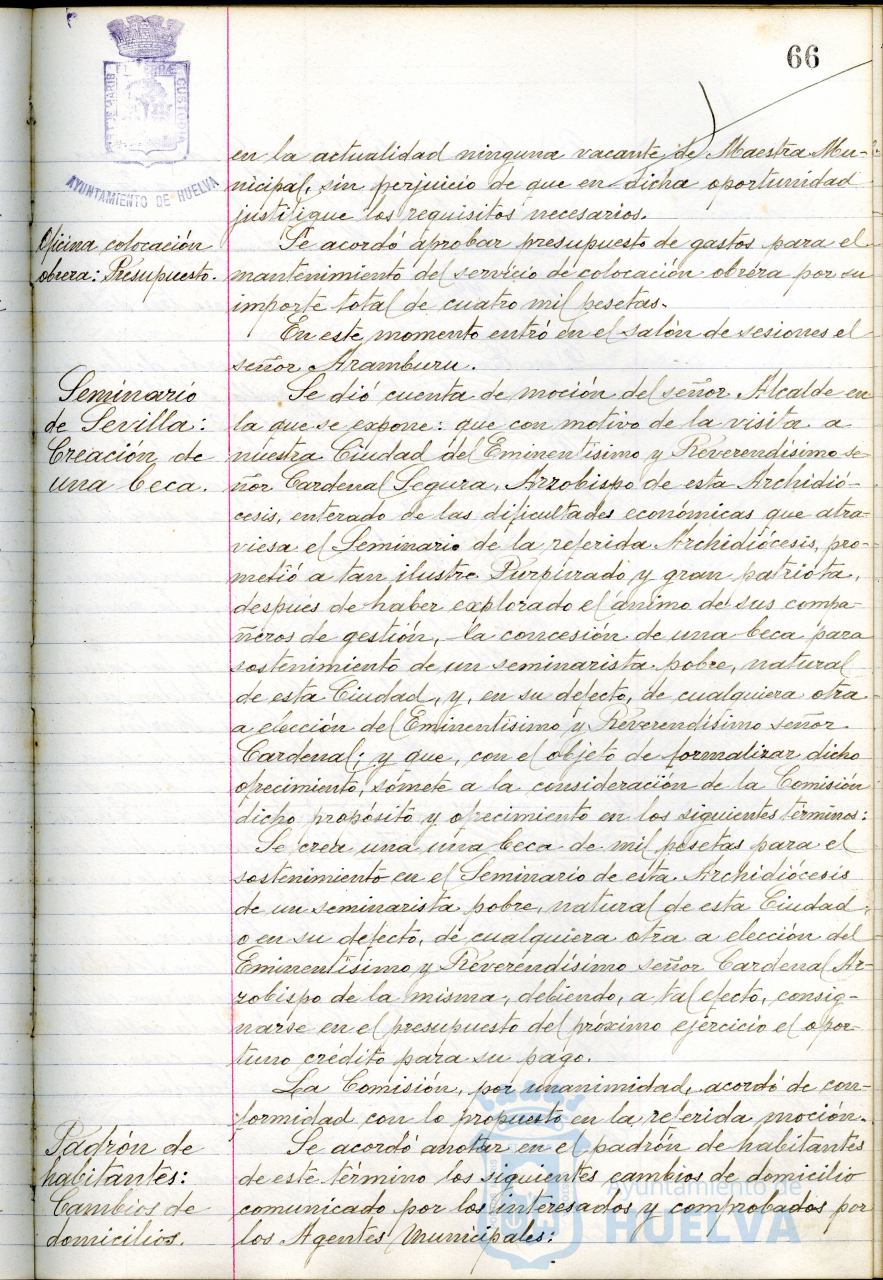 66
AYUNTAMIENTO DE HUELVA
en la actualidad ninguna vacante de Maestra Mu-
nicipal, sin perjuicio de que en dicha oportunidad
justifique los requisitos necesarios.
Oficina colocación
obrera: Presupuesto.
Se acordó aprobar presupuesto de gastos para el
mantenimiento del servicio de colocación obrera por su
importe total de cuatro mil pesetas.
En este momento entró en el salón de sesiones el
señor Aramburu.
Seminario
de Sevilla:
Creación de
una beca.
Se dió cuenta de moción del señor Alcalde en
la que se expone: que con motivo de la visita a
nuestra Ciudad del Eminentísimo y Reverendísimo se-
ñor Cardenal Segura, Arzobispo de esta Archidió-
cesis, enterado de las dificultades económicas que atra-
viesa el Seminario de la referida Archidiócesis, pro-
metió a tan ilustre Purpurado y gran patriota,
después de haber explorado el ánimo de sus compa-
ñeros de gestión, la concesión de una beca para
sostenimiento de un seminarista pobre, natural
de esta Ciudad, y, en su defecto, de cualquiera otra
a elección del Eminentísimo y Reverendísimo señor
Cardenal; y que, con el objeto de formalizar dicho
ofrecimiento, sómete a la consideración de la Comisión
dicho propósito y ofrecimiento en los siguientes términos:
Se crea una una beca de mil pesetas para el
sostenimiento en el Seminario de esta Archidiócesis
de un seminarista pobre, natural de esta Ciudad,
o en su defecto, de cualquiera otra a elección del
Eminentísimo y Reverendísimo señor Cardenal Ar-
zobispo de la misma, debiendo, a tal efecto, consig-
narse en el presupuesto del próximo ejercicio el opor-
tuno crédito para su pago.
La Comisión, por unanimidad, acordó de con-
formidad con lo propuesto en la referida moción.
Padrón de
habitantes:
Cambios de
domicilios.
Se acordó anotar en el padrón de habitantes
de este término los siguientes cambios de domicilio
comunicado por los interesados y comprobados por
los Agentes Municipales:
Ayuntamiento de
HUELVA